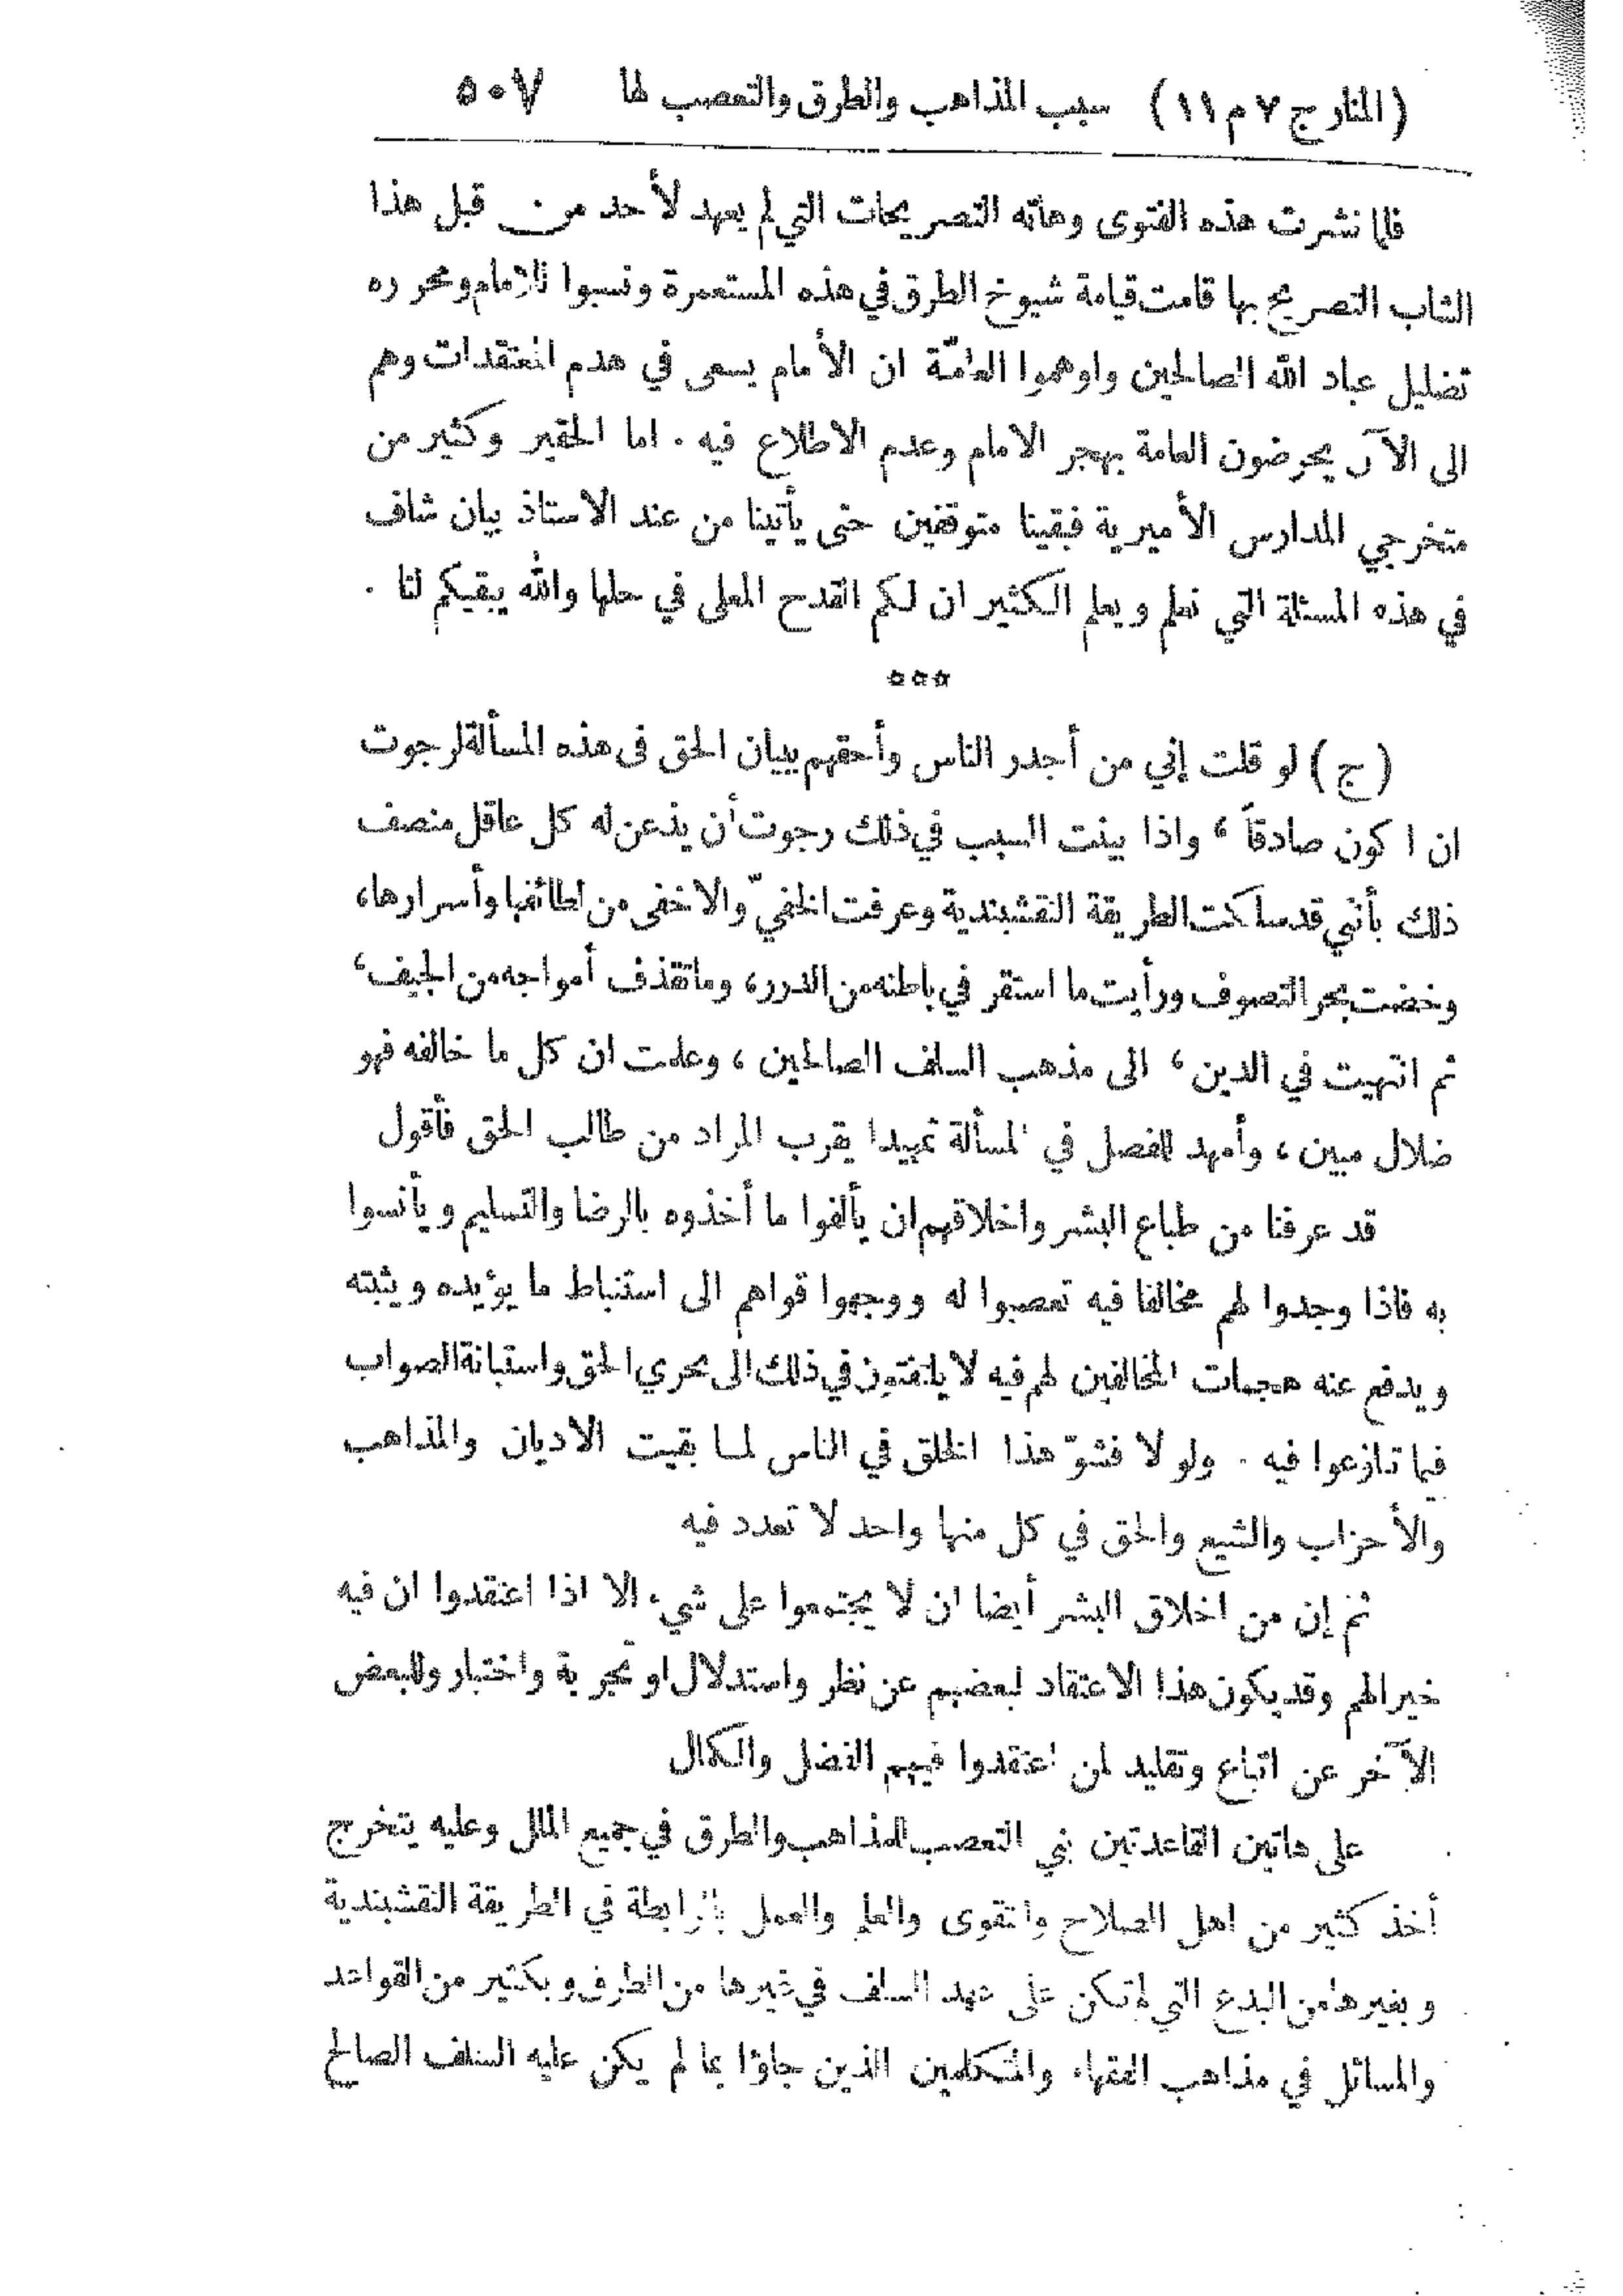 (المنار ج ٧ م ١١) سبب المذاهب والطرق والتعصب لها ٥٠٧
فلما نشرت هذه الفتوى وهاته التصريحات التي لم يعهد لأحد من قبل هذا
الشاب التصريح بها قامت قيامة شيوخ الطرق في هذه المستعمرة ونسبوا للامام ومحرره
تضليل عباد الله الصالحين واوهموا العامّة ان الأمام يسعى في هدم المعتقدات وهم
الى الآن يحرضون العامة بهجر الامام وعدم الاطلاع فيه . اما الحقير وكثير من
متخرجي المدارس الأميرية فبقينا متوقفين حتى يأتينا من عند الاستاذ بيان شاف
في هذه المسئلة التي نعلم ويعلم الكثير ان لكم القدح المعلى في حلها والله يبقيكم لنا .
***
(ج) لو قلت إني من أجدر الناس وأحقهم ببيان الحق في هذه المسألة لرجوت
ان اكون صادقاً ، واذا بينت السبب في ذلك رجوت أن يذعن له كل عاقل منصف
ذلك بأنني قد سلكت الطريقة النقشبندية وعرفت الخفيّ والاخفى من لطائفها وأسرارها،
وخضت بحر التصوف ورأيت ما استقر في باطنه من الدرر، وما تقذف أمواجه من الجيف،
ثم انتهيت في الدين ، الى مذهب السلف الصالحين ، وعلمت ان كل ما خالفه فهو
ضلال مبين ، وأمهد للفصل في المسألة تمهيدا يقرب المراد من طالب الحق فأقول
قد عرفنا من طباع البشر واخلاقهم ان يألفوا ما أخذوه بالرضا والتسليم ويأنسوا
به فاذا وجدوا لهم مخالفا فيه تعصبوا له ووجهوا قواهم الى استنباط ما يؤيده ويثبته
ويدفع عنه هجمات المخالفين لهم فيه لا يلتفتون في ذلك الى تحري الحق واستبانة الصواب
فيما تنازعوا فيه . ولولا فشوّ هذا الخلق في الناس لما بقيت الاديان والمذاهب
والأحزاب والشيع والحق في كل منها واحد لا تعدد فيه
ثم إن من اخلاق البشر أيضا ان لا يجتمعوا على شيء الا اذا اعتقدوا ان فيه
خيرا لهم وقد يكون هذا الاعتقاد لبعضهم عن نظر واستدلال او تجربة واختبار وللبعض
الآخر عن اتباع وتقليد لمن اعتقدوا فيهم الفضل والكمال
على هاتين القاعدتين بني التعصب للمذاهب والطرق في جميع الملل وعليه يتخرج
أخذ كثير من اهل الصلاح والتقوى والعلم والعمل بالرابطة في الطريقة النقشبندية
وبغيرها من البدع التي لم تكن على عهد السلف في غيرها من الطرق وبكثير من القواعد
والمسائل في مذاهب الفقهاء والمتكلمين الذين جاؤا بما لم يكن عليه السلف الصالح